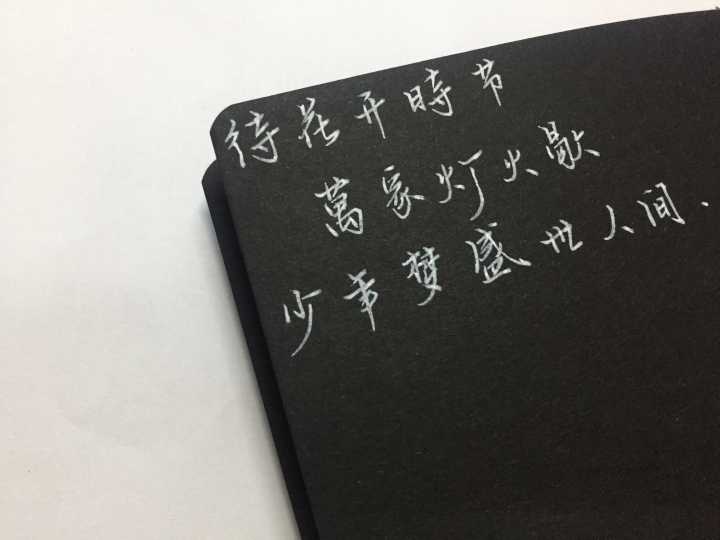 待花开時节
萬家灯火歇
少年梦盛世人间.